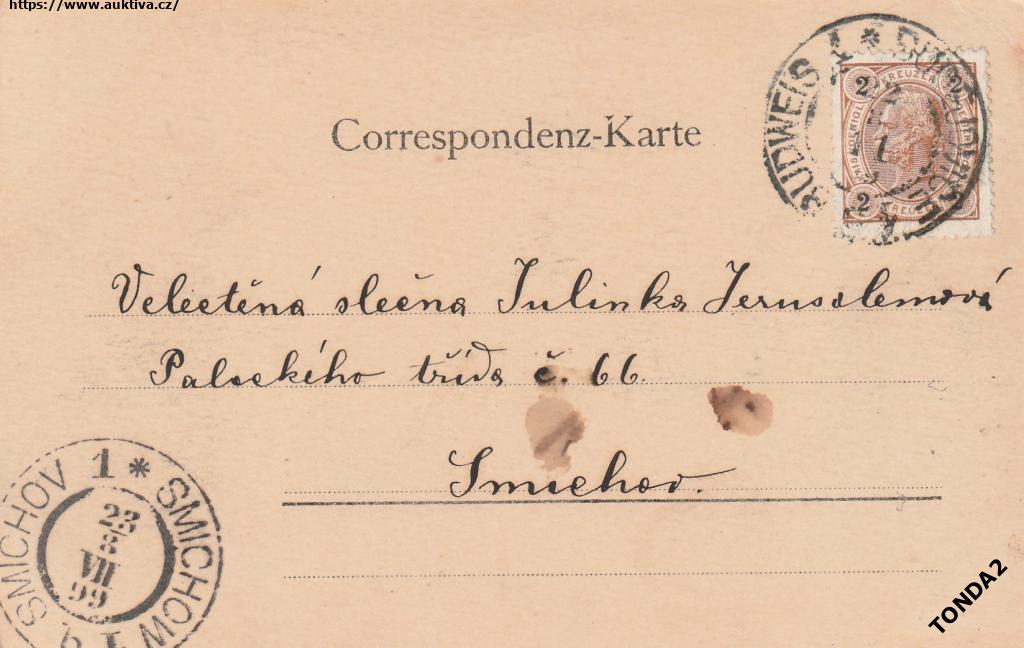 https://www.auktiva.cz/
Correspondenz-Karte
BUDWEIS 1 *
2 KREUZER 2
2 KREUZER
Velectěná slečna Julinka Jerusalemová
Palackého třída č. 66.
Smichov.
SMICHOV 1 * SMICHOW 1
23
8
VII
99
TONDA2